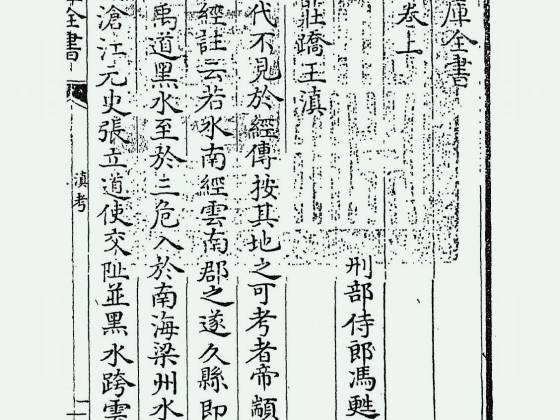 庫全書
卷上
刑部侍郎馮甦
莊蹻王滇
代不見於經傳按其地之可考者帝顓
經註云若水南經雲南郡之遂久縣即
禹道黑水至於三危入於南海梁州水
滄江元史張立道使交阯並黑水跨雲
全書
滇考